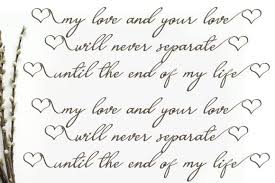 my love and your love
will never separate
until the end of my life
my love and your love
will never separate
until the end of my life